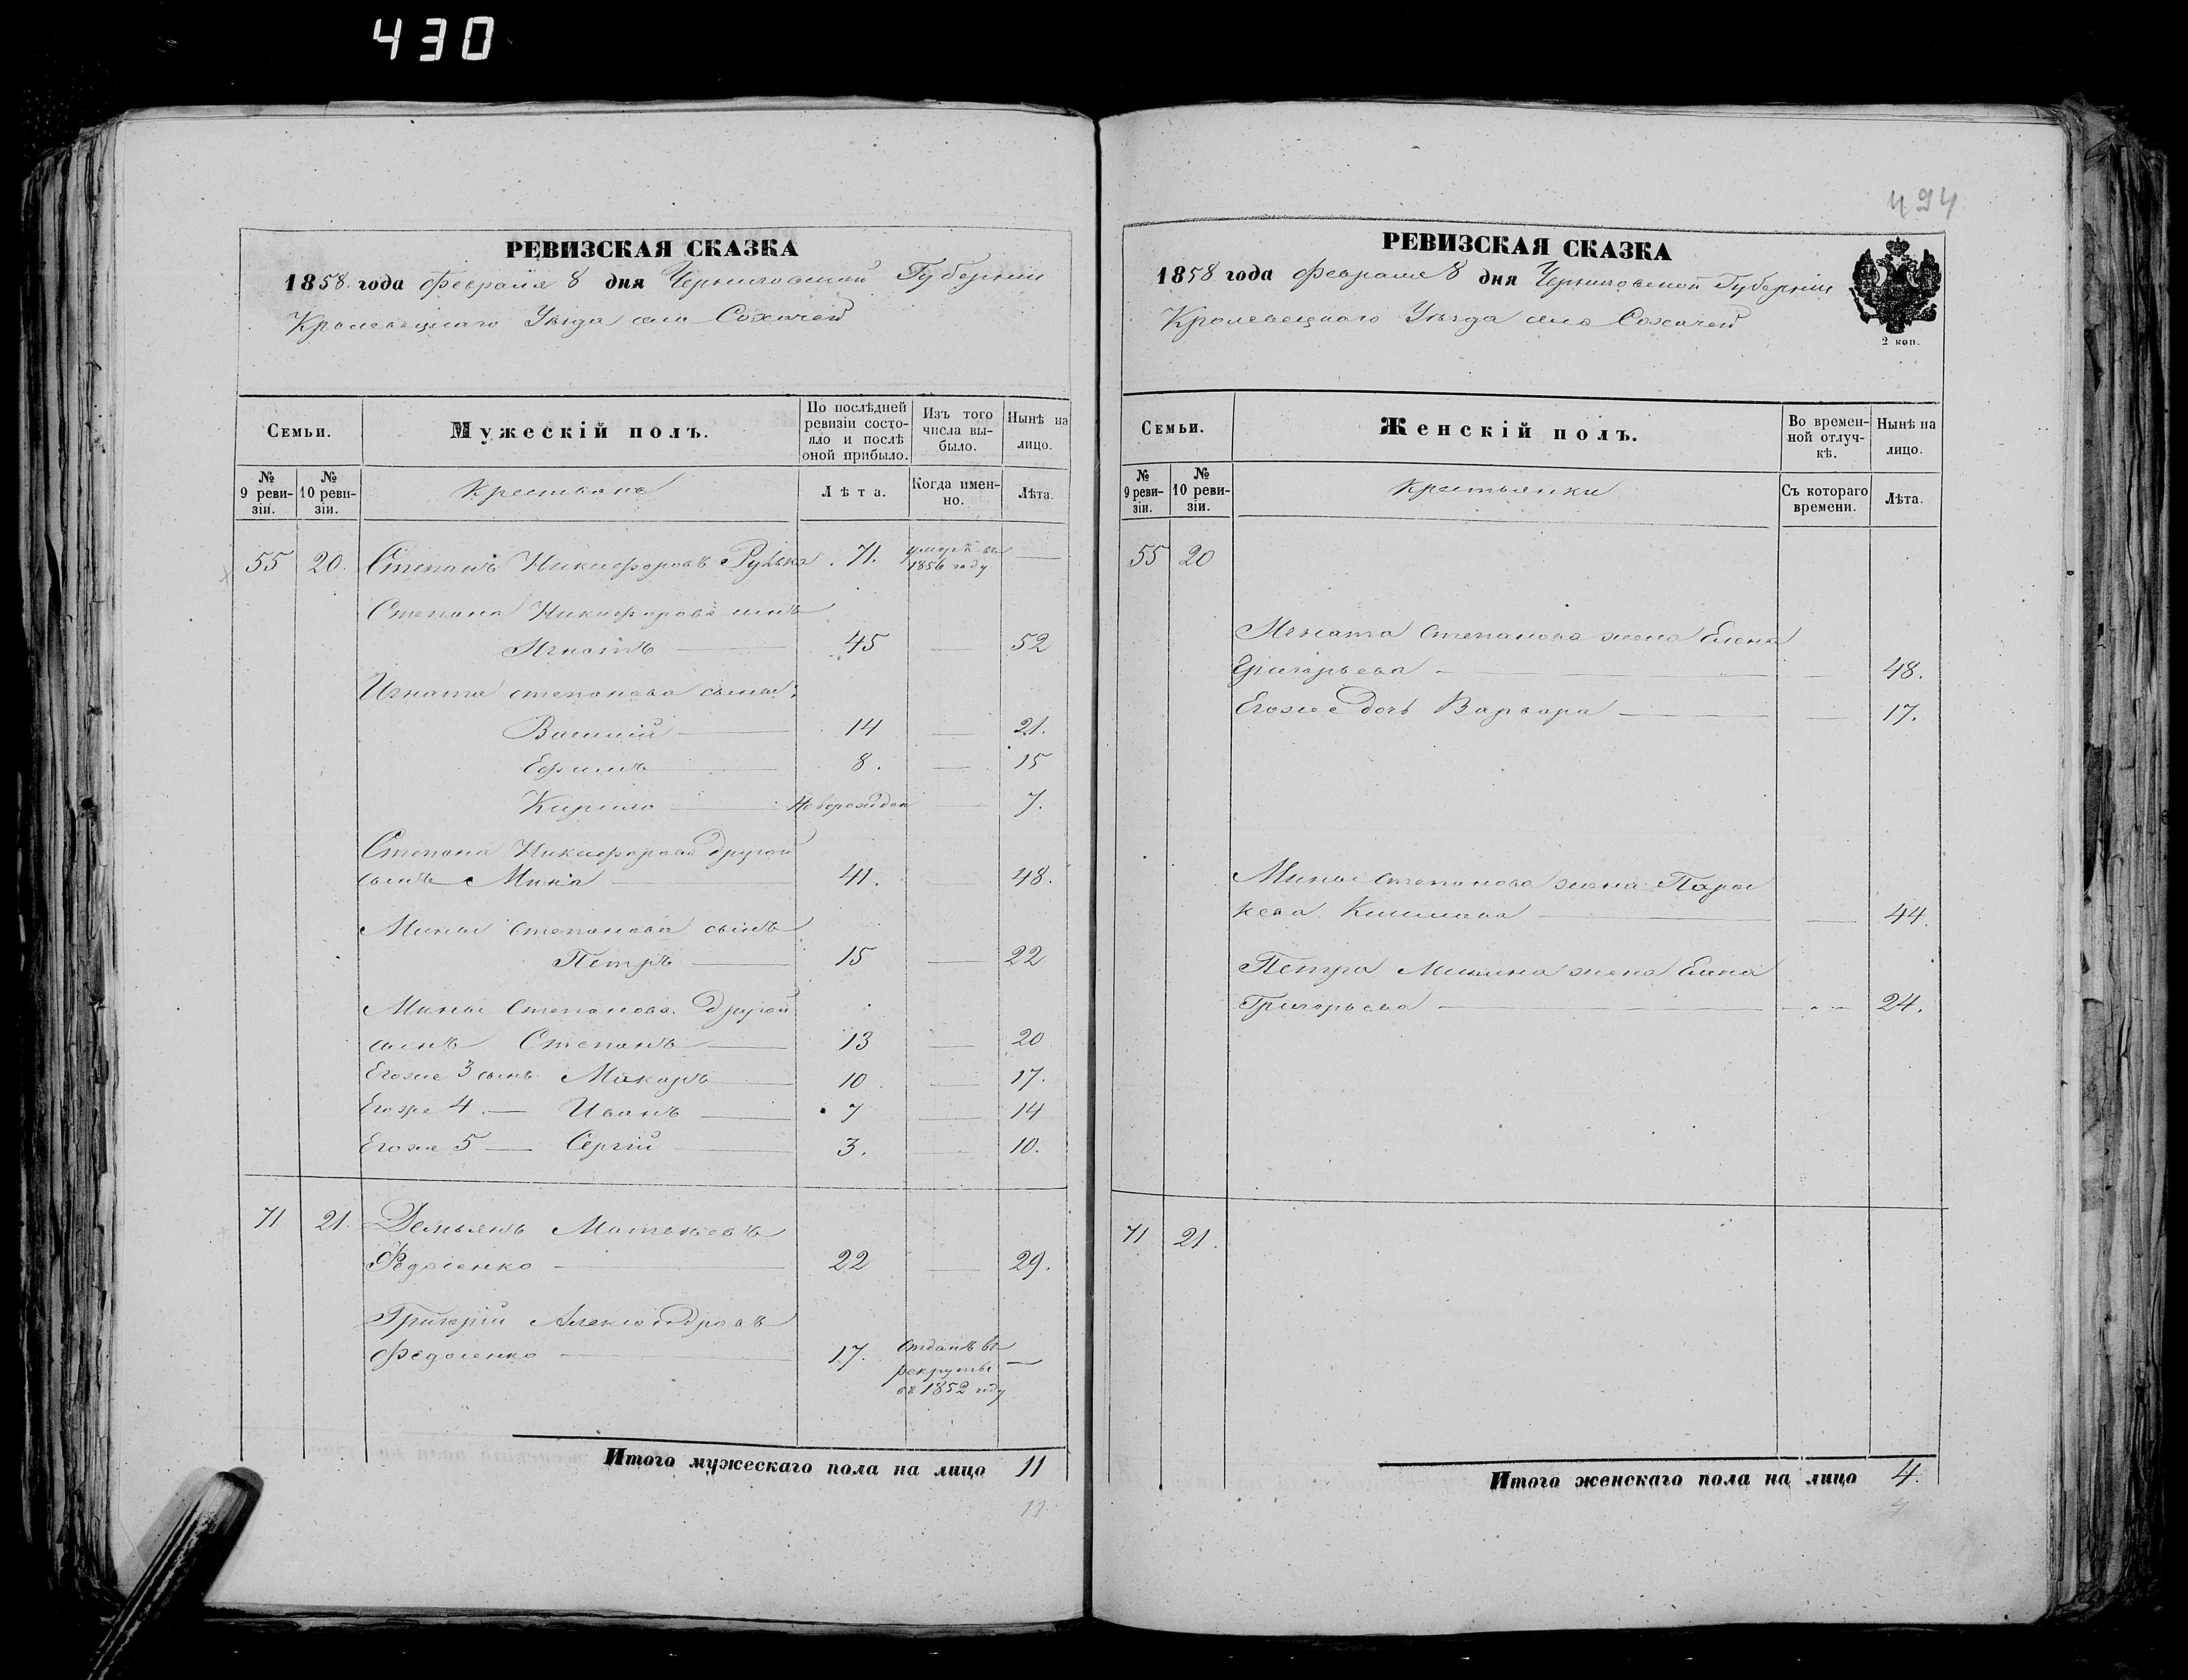 430
РЕВИЗСКАЯ СКАЗКА
1858 года Февраля 8 дня Черниговской Губерніи
Кролевецкаго Уѣзда села Сохачей
Семьи.
Мужескій полъ.
По послѣдней ревизіи состояло и послѣ оной прибыло.
Изъ того числа выбыло.
Нынѣ на лицо.
№ 9 ревизіи.
№ 10 ревизіи.
Крестьяне
Лѣта.
Когда именно.
Лѣта.
55 20. Степанъ Никифоровъ Рудька 71. умеръ въ 1856 году —
Степана Никифорова сынъ
Игнатъ — 45 — 52
Игната Степанова сыны:
Василій — 14 — 21.
Ефимъ — 8. — 15
Кирило — Новорожден — 7.
Степана Никифорова другой
сынъ Мина — 41. — 48.
Мины Степанова сынъ
Петръ — 15 — 22
Мины Степанова другой
сынъ Степанъ — 13 — 20
Егоже 3 сынъ Макаръ — 10 — 17.
Егоже 4. — Иванъ — 7 — 14
Егоже 5 — Сергій — 3. — 10.
71 21. Демьянъ Матвѣевъ
Федосенко — 22 — 29.
Григорій Александровъ
Федосенко — 17. отданъ въ рекруты въ 1852 году —
Итого мужескаго пола на лицо 11
11
494
РЕВИЗСКАЯ СКАЗКА
1858 года Февраля 8 дня Черниговской Губерніи
Кролевецкаго Уѣзда села Сохачей
2 коп.
Семьи.
Женскій полъ.
Во временной отлучкѣ.
Нынѣ на лицо.
№ 9 ревизіи.
№ 10 ревизіи.
Крестьянки
Съ котораго времени.
Лѣта.
55 20
Игната Степанова жена Елена
Григорьева — — 48.
Егоже дочь Варвара — — 17.
Мины Степанова жена Парас
кева — — 44.
Петра Минина жена Елена
Григорьева — — 24.
71 21.
Итого женскаго пола на лицо 4.
4